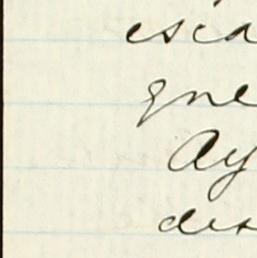 esca
que
Ay
des